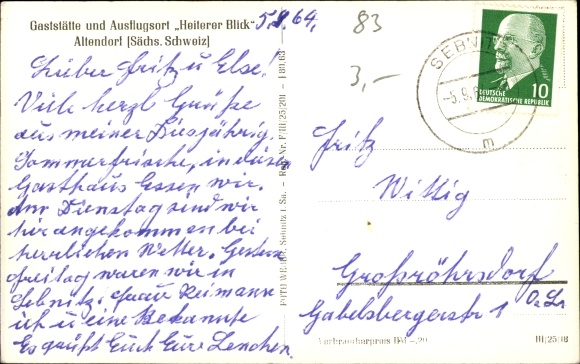 Gaststätte und Ausflugsort „Heiterer Blick“
Altendorf [Sächs. Schweiz]
5.9.64.
Lieber Fritz u Else!
Viele herzl Grüße
aus meiner Diesjährig.
Sommerfrische, in diesen
Gasthaus Essen wir.
Am Dienstag sind wir
hir angekommen bei
herrlichen Wetter. Gestern
Freitag waren wir in
Sebnitz: Frau Reimann
ich u eine Bekannte
Es grüßt Euch Eure Lenchen.
83
3,-
SEBNITZ
-5.9.6
10
DEUTSCHE
DEMOKRATISCHE REPUBLIK
Fritz
Wittig
Großröhrsdorf
Gabelsbergerstr 1
Verbraucherpreis
III/25/18